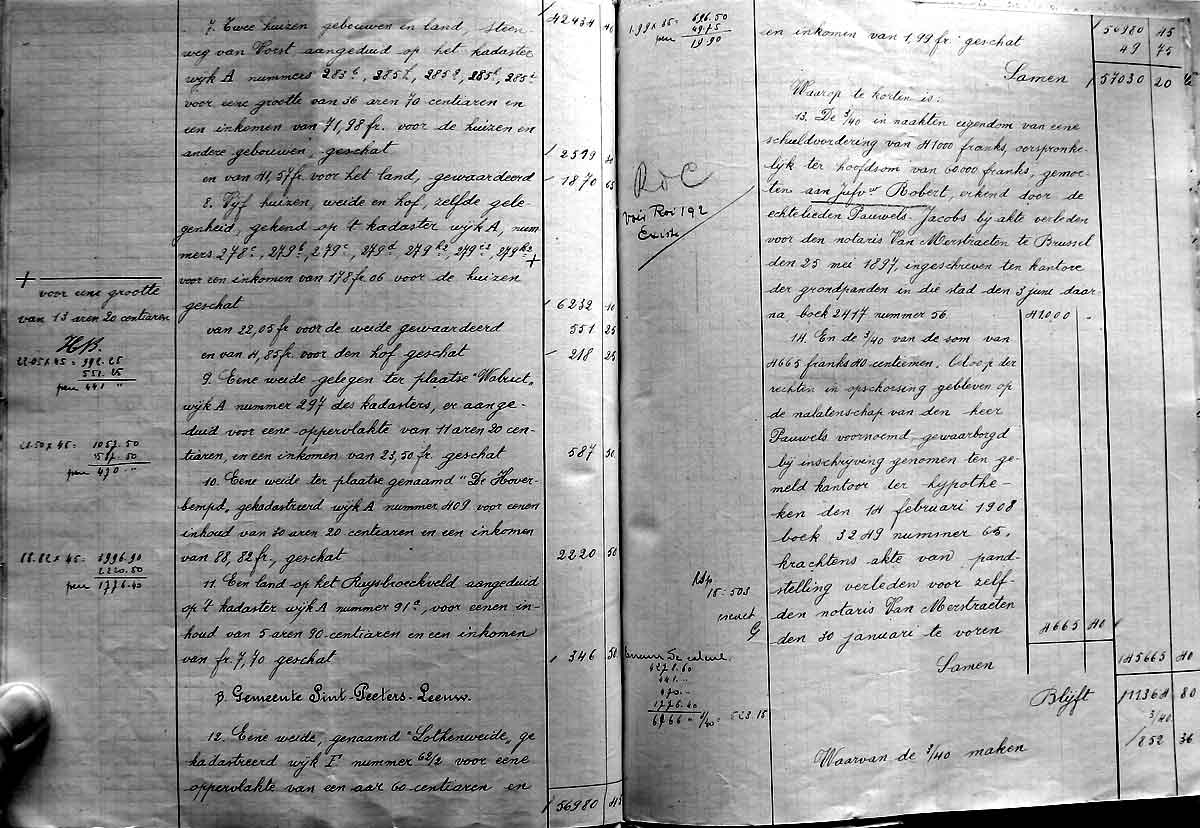 42434 40
7. Twee huizen gebouwen en land, steen-
weg van Vorst aangeduid op het kadaster
wijk A nummers 283
voor eene grootte van 36 aren 70 centiaren en
een inkomen van 71,98 fr. voor de huizen en
andere gebouwen, geschat 2599
en van 41,57 fr. voor het land, gewaardeerd 1870 65
8. Vijf huizen, weide en hof, zelfde gele-
genheid, gekend op 't kadaster wijk A, num
mers 278c, 279b, 279c, 279d
voor een inkomen van 178 fr 06 voor de huizen
geschat 6232 10
+
voor eene grootte
van 13 aren 20 centiaren
van 22,05 fr voor de weide gewaardeerd 551 25
en van 4,85 fr. voor den hof geschat 218 25
22.05 x 45 = 992.25
551.25
441 "
9. Eene weide gelegen ter plaatse "Walriet",
wijk A nummer 297 des kadasters, er aange-
duid voor eene oppervlakte van 11 aren 20 cen-
tiaren, en een inkomen van 23,50 fr. geschat 587 50
23.50 x 45 = 1057.50
587.50
470 "
10. Eene weide ter plaatse genaamd "De Hover-
bempd", gekadastreerd wijk A nummer 409 voor eenen
inhoud van 30 aren 20 centiaren en een inkomen
van 88,82 fr., geschat 2220 50
88.82 x 45 = 1996.90
2220.50
1776.40
11. Een land op het Ruysbroeckveld aangeduid
op 't kadaster wijk A nummer 91a, voor eenen in-
houd van 5 aren 90 centiaren en een inkomen
van fr. 7,70 geschat 346 50
B. Gemeente Sint-Peeters-Leeuw.
12. Eene weide, genaamd "Lotkenweide", ge
kadastreerd wijk F nummer 62/2 voor eene
oppervlakte van een aar 60 centiaren en
56980 45
1.99 x 35 = 696.50
49.75
19.90
56980 45
een inkomen van 1,99 fr. geschat 49 75
Samen 57030 20
Waarop te korten is:
13. De 3/40 in naakten eigendom van eene
schuldvordering van 41000 franks, oorspronke-
lijk ter hoofdsom van 60.000 franks, gemoe-
ten aan Jufvw Robert, erkend door de
echtelieden Pauwels-Jacobs bij akte verleden
voor den notaris Van Merstraeten te Brussel
den 25 mei 1897, ingeschreven ten kantore
der grondpanden in die stad den 3 juni daar
na boek 2417 nummer 56. 41000 "
voir Roi 192
14. En de 3/40 van de som van
4665 franks 40 centiemen, beloop der
rechten in opschorsing gebleven op
de nalatenschap van den heer
Pauwels voornoemd, gewaarborgd
bij inschrijving genomen ten ge-
meld kantoor der hypothe-
ken den 14 februari 1908
boek 3249 nummer 65,
krachtens akte van pand-
stelling verleden voor zelf-
den notaris Van Merstraeten
den 30 januari te voren 4665 40
Samen 45665 40
441 "
470 "
1776.40
Blijft 11364 80
3/40
Waarvan de 3/40 maken 852 36